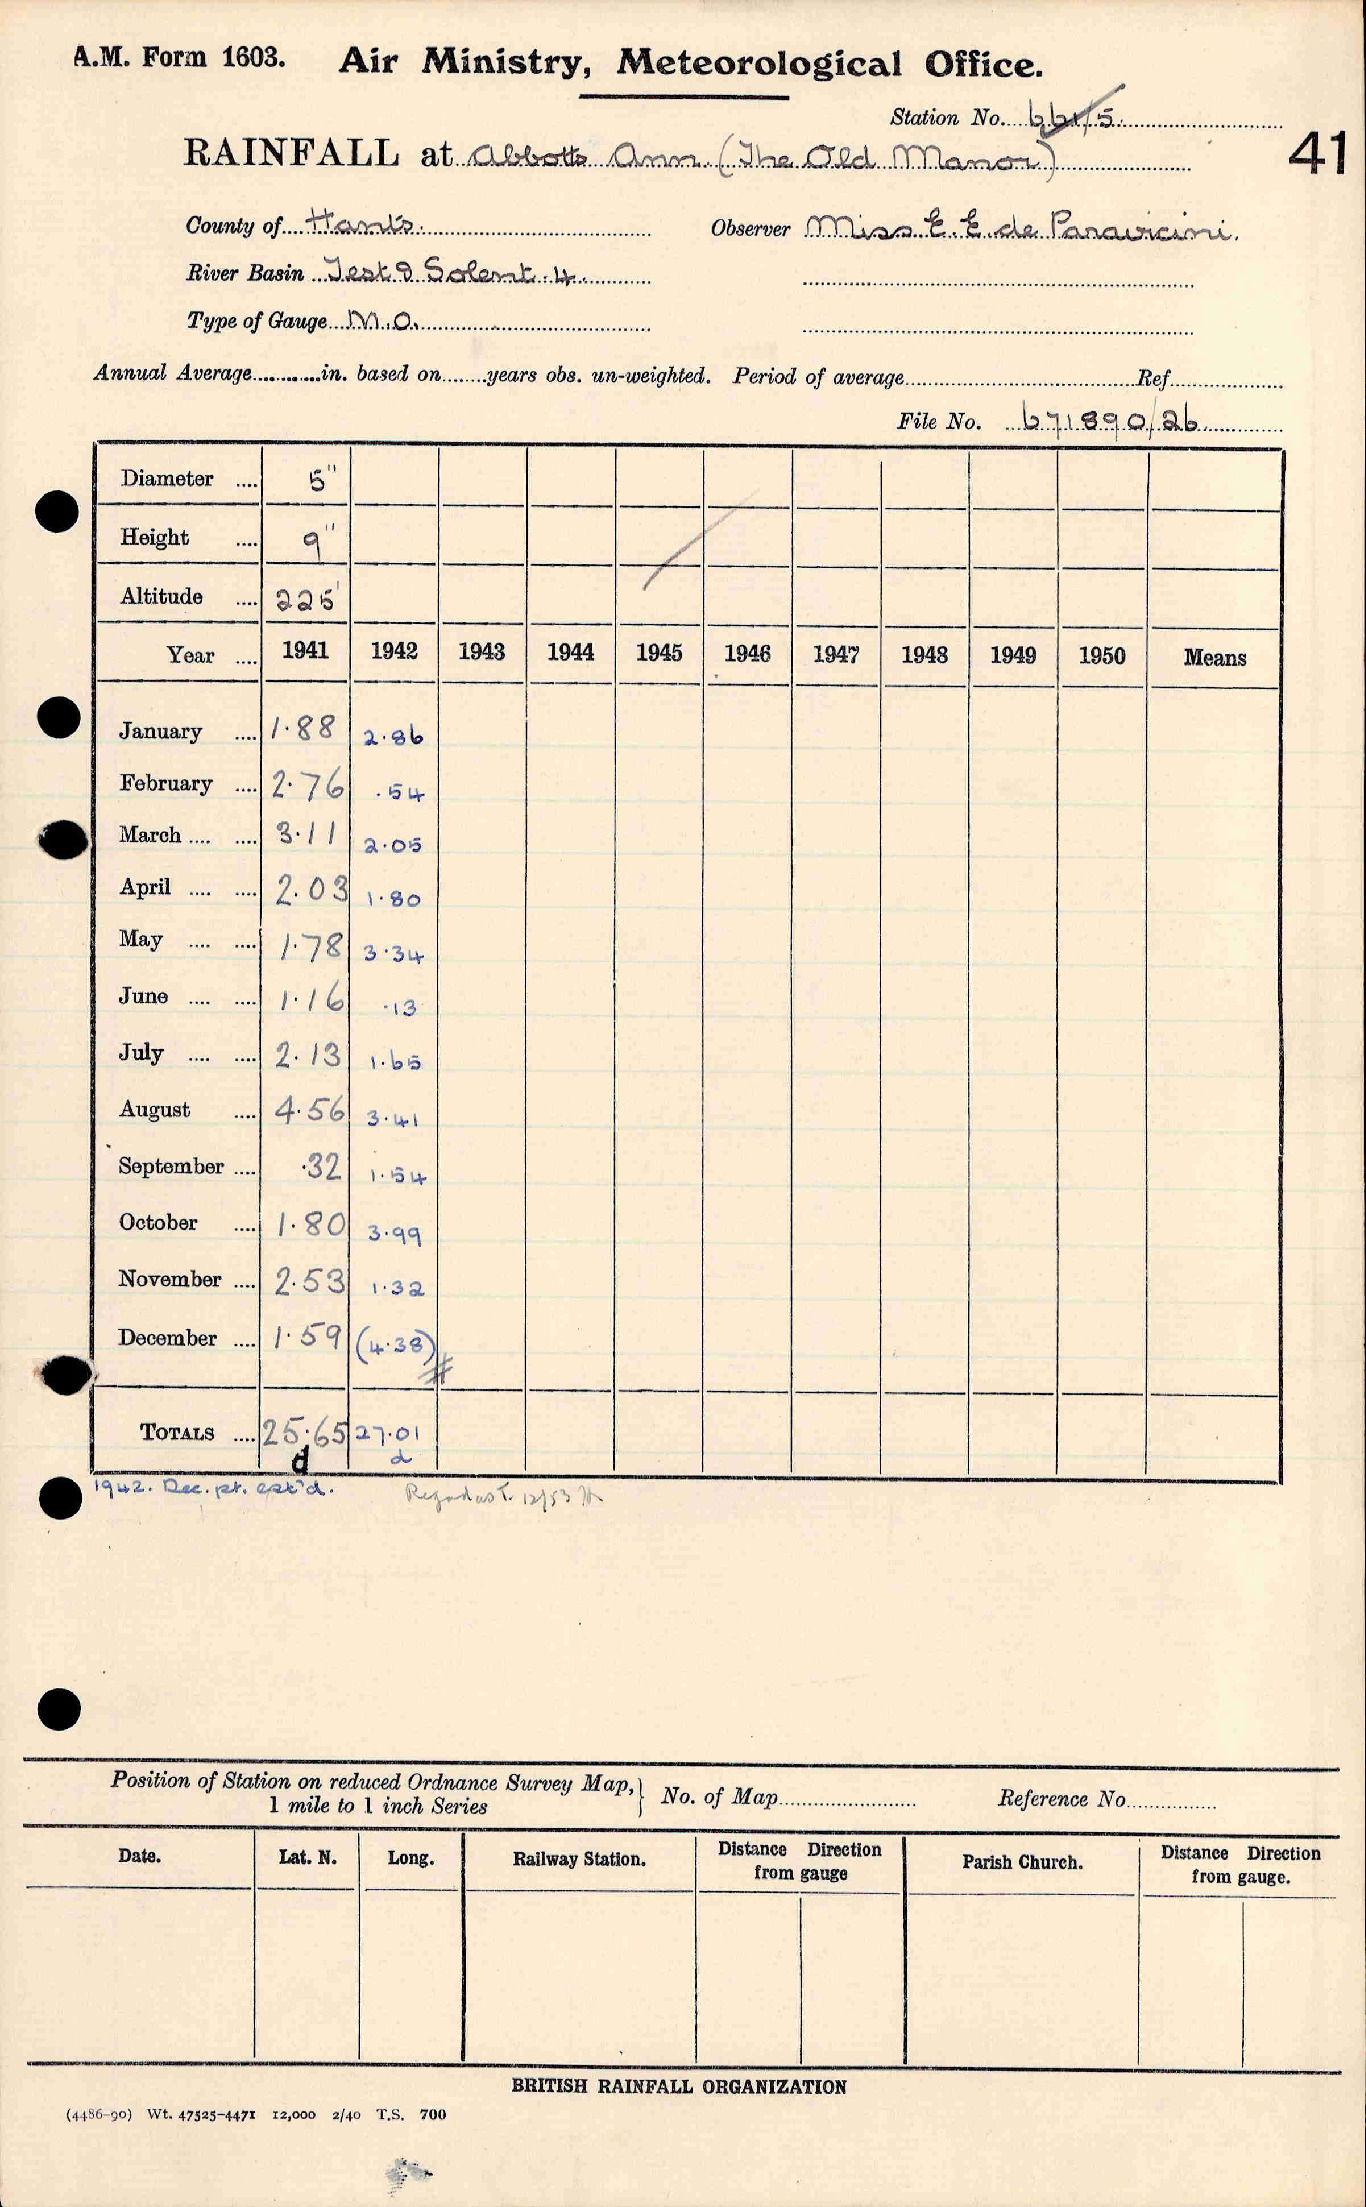 A.M. Form 1603. Air Ministry, Meteorological Office.
Station No. 661/5
RAINFALL at Abbotts Ann (The Old Manor)
41
County of Hants. Observer Miss E. E. de Paravicini.
River Basin Test & Solent 4.
Type of Gauge M.O.
Annual Average............in. based on........years obs. un-weighted. Period of average........ Ref........
File No. 671890/26
Diameter .... 5"
Height .... 9"
Altitude .... 225'
Year .... 1941 1942 1943 1944 1945 1946 1947 1948 1949 1950 Means
January .... 1.88 2.86
February .... 2.76 .54
March .... .... 3.11 2.05
April .... .... 2.03 1.80
May .... .... 1.78 3.34
June .... .... 1.16 .13
July .... .... 2.13 1.65
August .... 4.56 3.41
September .... .32 1.54
October .... 1.80 3.99
November .... 2.53 1.32
December .... 1.59 (4.38)
TOTALS .... 25.65 27.01
d d
1942. Dec. pt. est'd. 12/53
Position of Station on reduced Ordnance Survey Map, } No. of Map........ Reference No........
1 mile to 1 inch Series
Date. Lat. N. Long. Railway Station. Distance Direction from gauge Parish Church. Distance Direction from gauge.
BRITISH RAINFALL ORGANIZATION
(4486-90) Wt. 47525-4471 12,000 2/40 T.S. 700